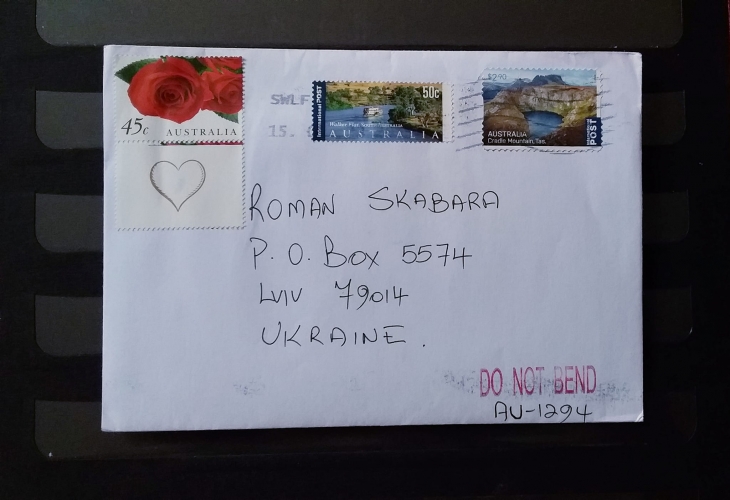 45c AUSTRALIA
SWLF
15.
International POST
50c
Walker Flat, South Australia
AUSTRALIA
$2.90
AUSTRALIA
Cradle Mountain, Tas.
POST
ROMAN SKABARA
P.O. BOX 5574
LVIV 79014
UKRAINE.
DO NOT BEND
AU-1294